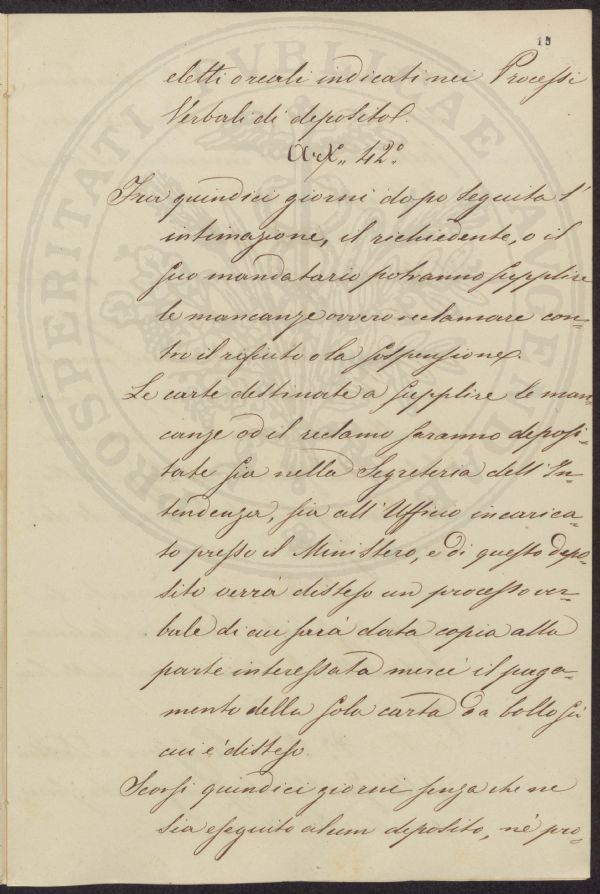 15
eletti o reali indicati nei Processi
Verbali di deposito.
Art.° 42.°
Fra quindici giorni dopo seguita l'
intimazione, il richiedente, o il
suo mandatario potranno supplire
le mancanze ovvero reclamare con-
tro il rifiuto o la sospensione.
Le carte destinate a supplire le man-
canze od il reclamo saranno deposi-
tate sia nella Segreteria dell'In-
tendenza, sia all'Ufficio incarica-
to presso il Ministero, e di questo depo-
sito verrà disteso un processo ver-
bale di cui sarà data copia alla
parte interessata mercè il paga-
mento della sola carta da bollo su
cui è disteso.
Scorsi quindici giorni senza che ne
sia eseguito alcun deposito, nè pro-
PROSPERITATI PVBLICAE AVGENDAE